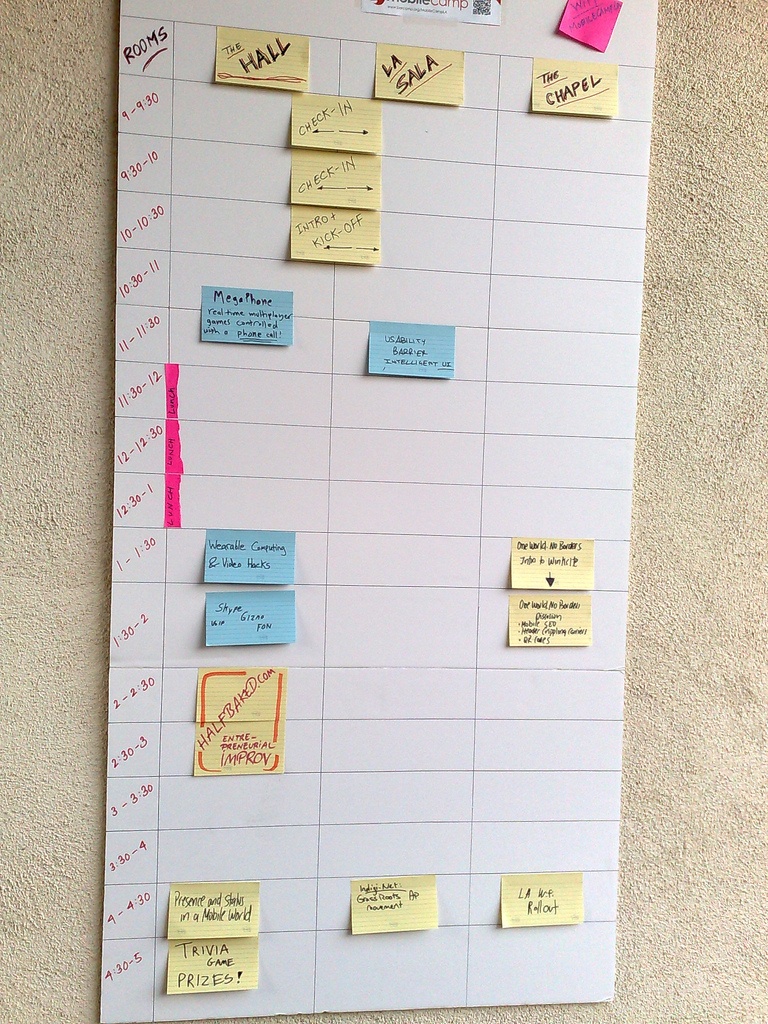 mobilecamp
ROOMS
THE HALL
LA SALA
THE CHAPEL
9-9:30
CHECK-IN
9:30-10
CHECK-IN
10-10:30
INTRO+
KICK-OFF
10:30-11
11-11:30
MegaPhone
real-time multiplayer
games controlled
with a phone call!
USABILITY
BARRIER
INTELLIGENT UI
11:30-12
LUNCH
12-12:30
LUNCH
12:30-1
LUNCH
1-1:30
Wearable Computing
& Video Hacks
One World No Borders
Intro to
1:30-2
Skype
GIZMO
FON
One World No Borders
Mobile SEO
QR Codes
2-2:30
HALFBAKED.COM
2:30-3
ENTRE-
PRENEURIAL
IMPROV
3-3:30
3:30-4
4-4:30
Presence and Status
in a Mobile World
Indigi-Net:
GrassRoots AP
movement
LA
Rollout
4:30-5
TRIVIA
GAME
PRIZES!